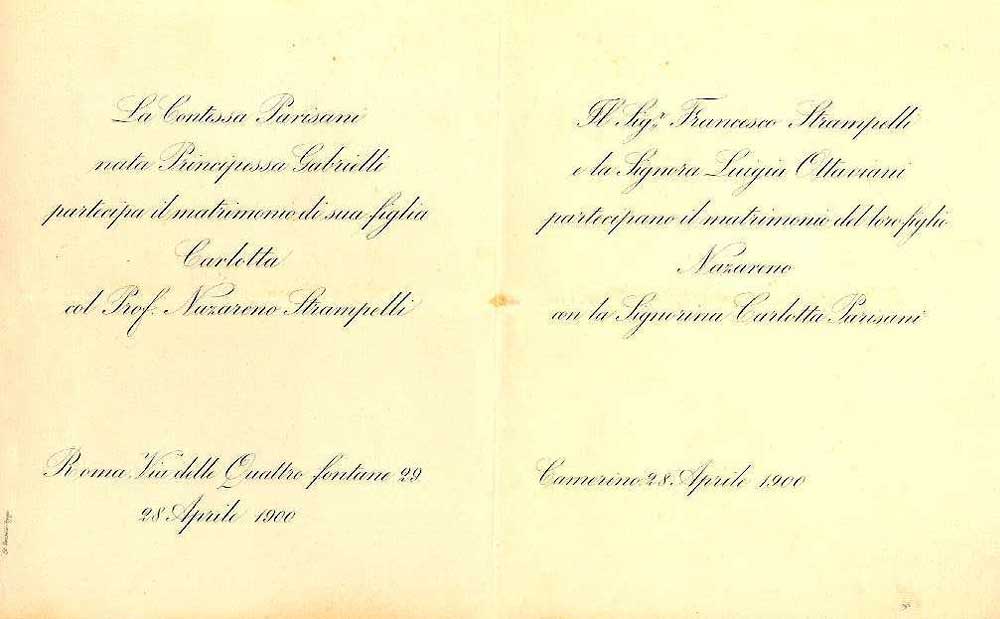 La Contessa Parisani
nata Principessa Gabrielli
partecipa il matrimonio di sua figlia
Carlotta
col Prof. Nazareno Strampelli
Roma Via delle Quattro fontane 29
28 Aprile 1900
Il Sigr. Francesco Strampelli
e la Signora Luigia Ottaviani
partecipano il matrimonio del loro figlio
Nazareno
con la Signorina Carlotta Parisani
Camerino 28 Aprile 1900